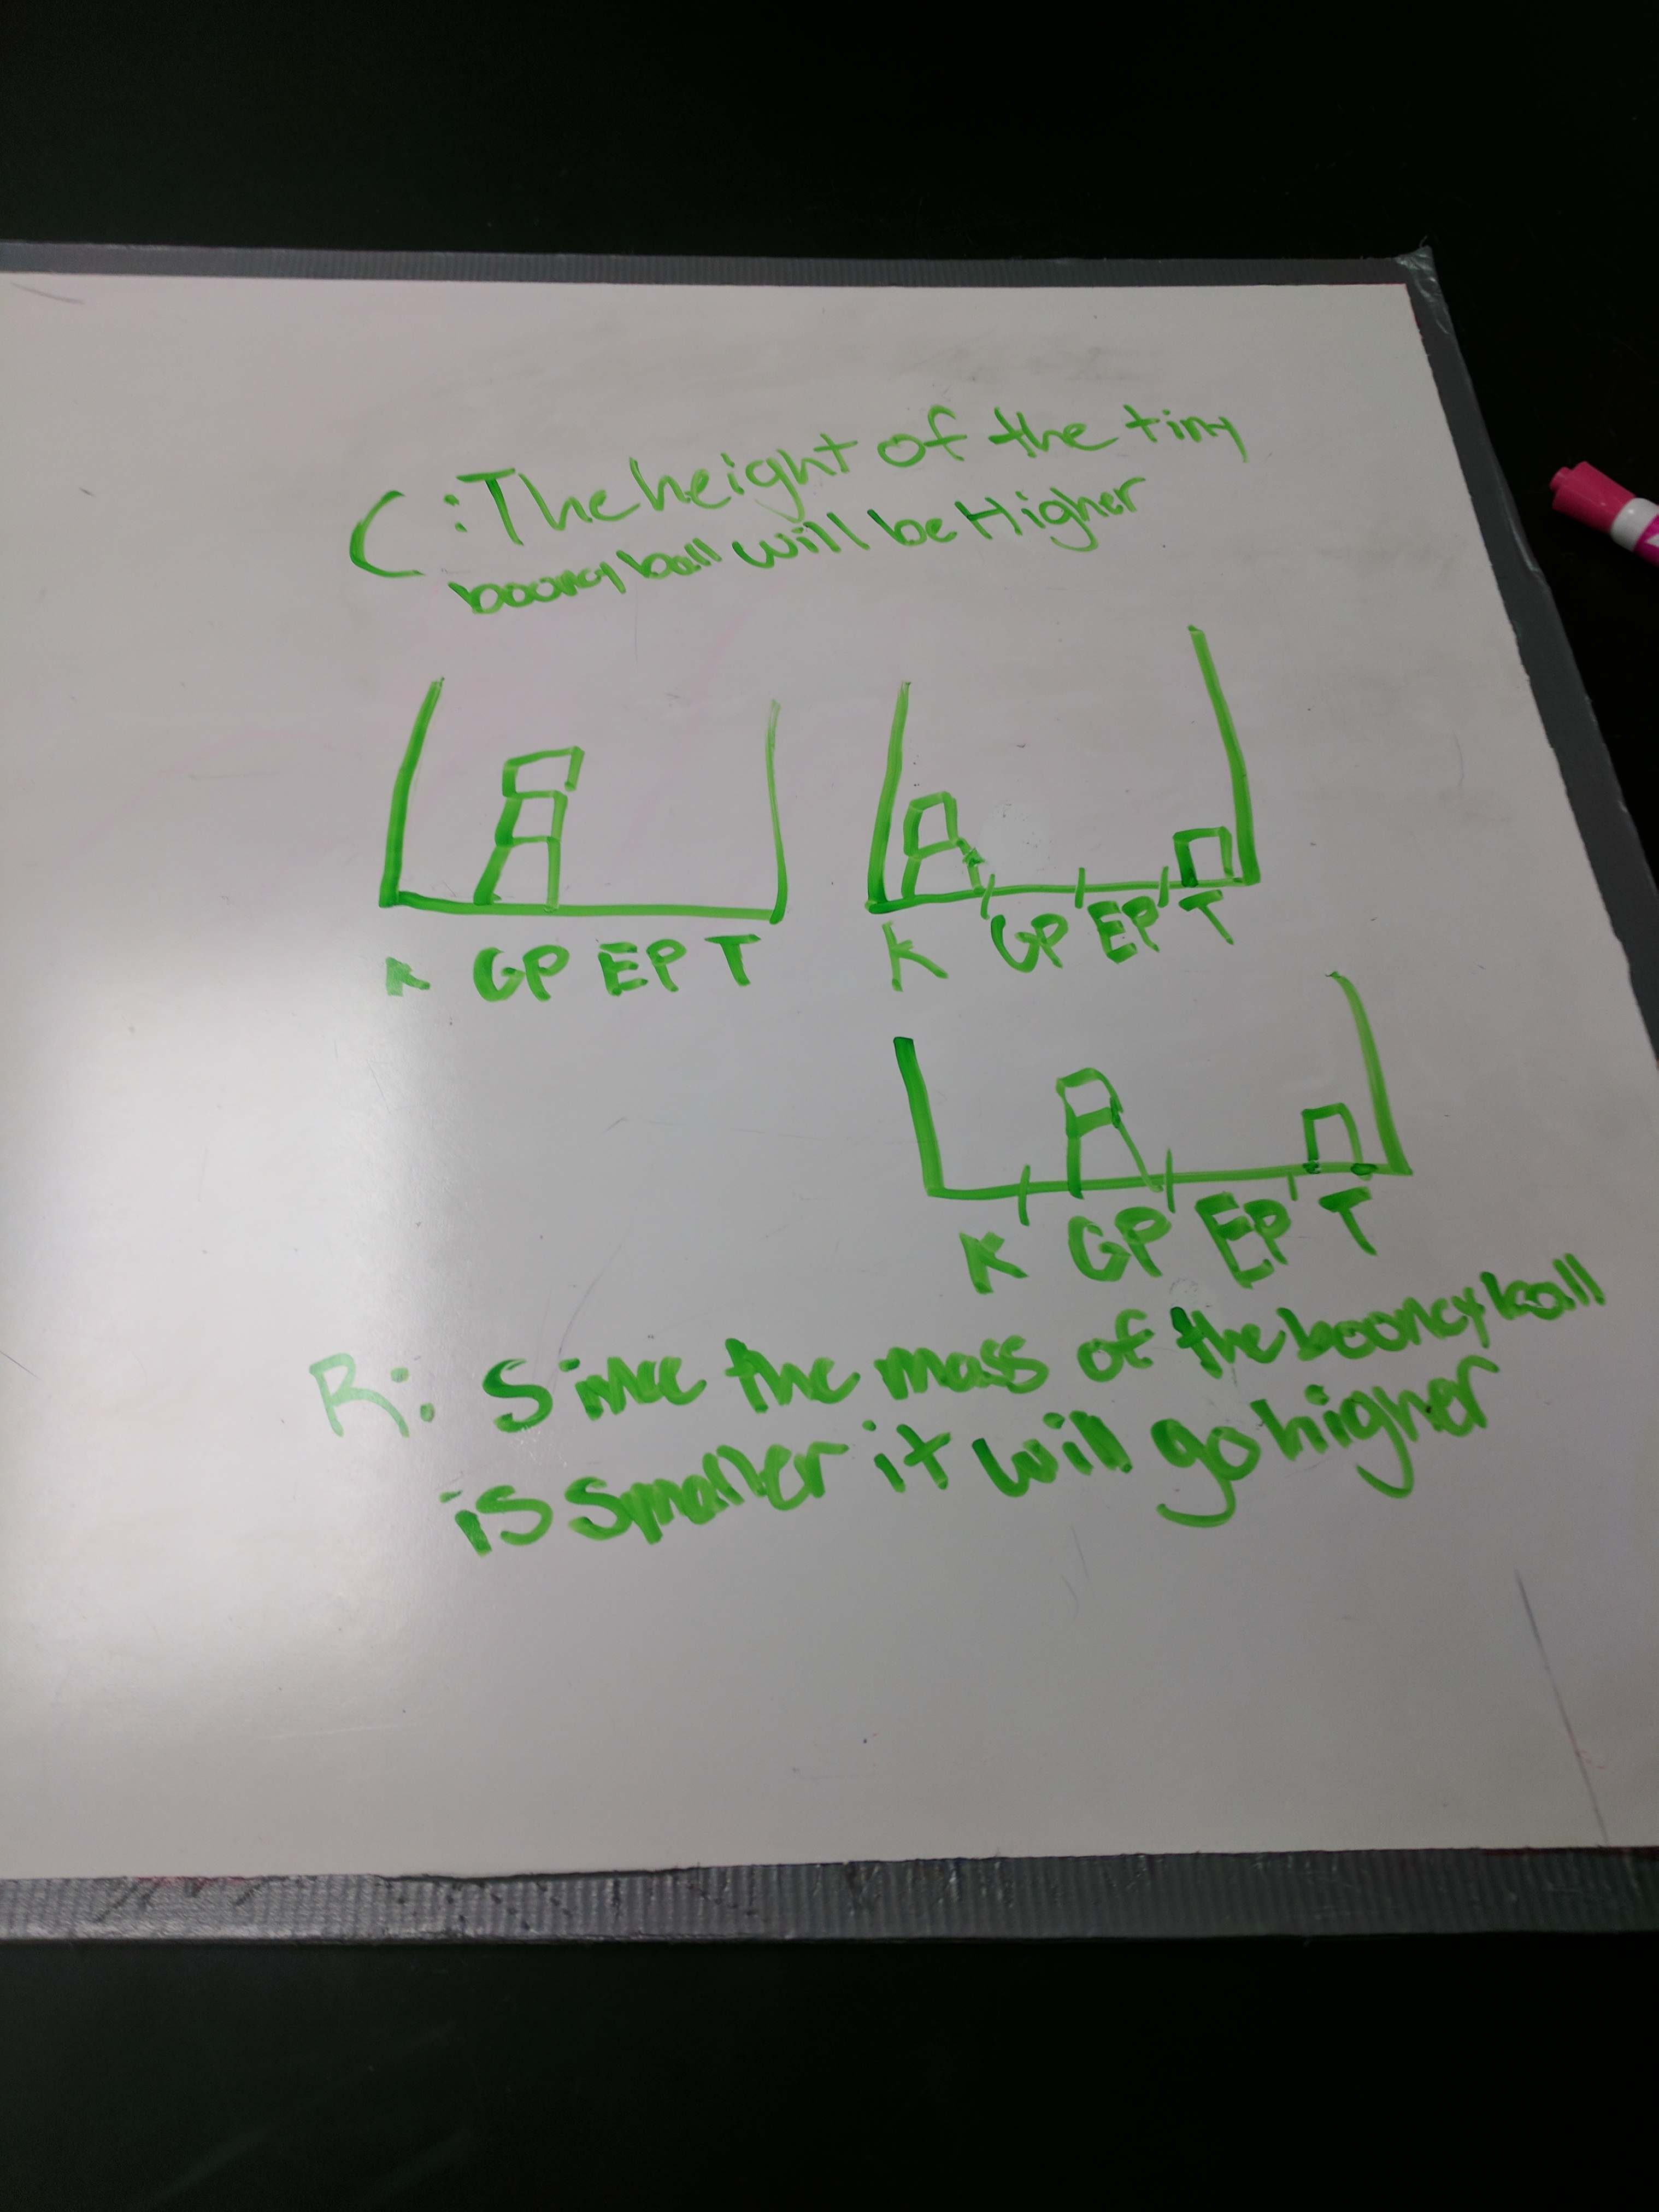 C: The height of the tiny
booncy ball will be Higher
K GP EP T
K GP EP T
K GP EP T
R: Since the mass of the booncy ball
is smaller it will go higher